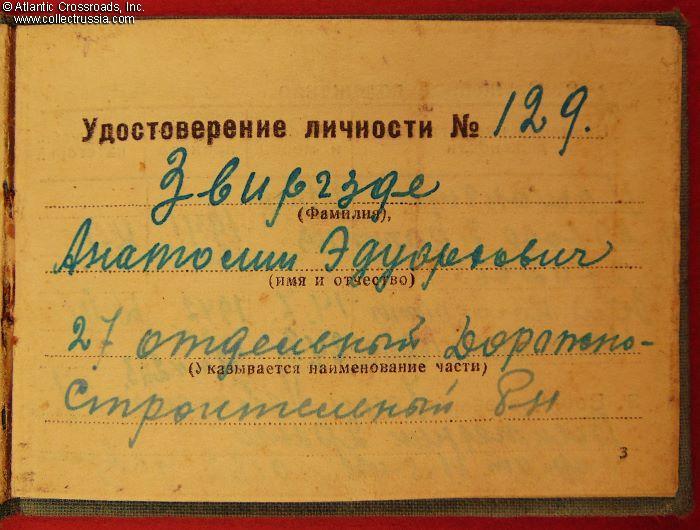 © Atlantic Crossroads, Inc.
www.collectrussia.com
Удостоверение личности № 129.
Звиргзде
(Фамилия),
Анатолий Эдуардович
(имя и отчество)
27 отдельный Дорожно-
(Указывается наименование части)
Строительный Б-н
3